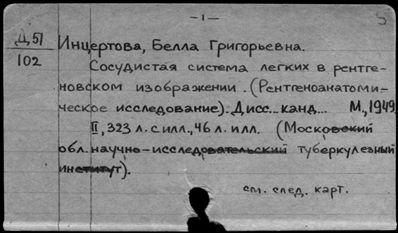 – 1 –
Д51
102
Инцертова, Белла Григорьевна.
Сосудистая система легких в рентге-
новском изображении. (Рентгеноанатоми-
ческое исследование). Дисс... канд... М., 1949
II, 323 л. с илл., 46 л. илл. (Московский
обл. научно-исследовательский туберкулезный
институт).
см. след. карт.